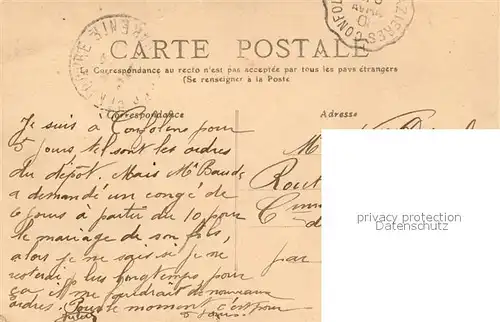 CARTE POSTALE
Correspondance au recto n'est pas acceptée par tous les pays étrangers
(Se renseigner à la Poste
Correspondance
Adresse
Je suis à Confolens pour
5 jours tel sont les ordres
du dépôt. Mais Mr
a demandé un congé de
6 jours à partir du 10 pour
le mariage de son fils,
alors je ne sais si je
resterai plus longtemps pour
ça il me faudrait de nouveaux
ordres. Pour le moment c'est pour
5 jours.
M
Rout
C
d
par
privacy protection
privacy protection